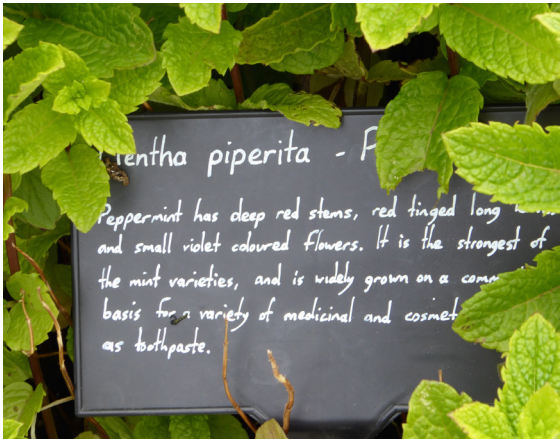 Mentha piperita - P
Peppermint has deep red stems, red tinged long
and small violet coloured flowers. It is the strongest of
the mint varieties, and is widely grown on a
basis for a variety of medicinal and
as toothpaste.